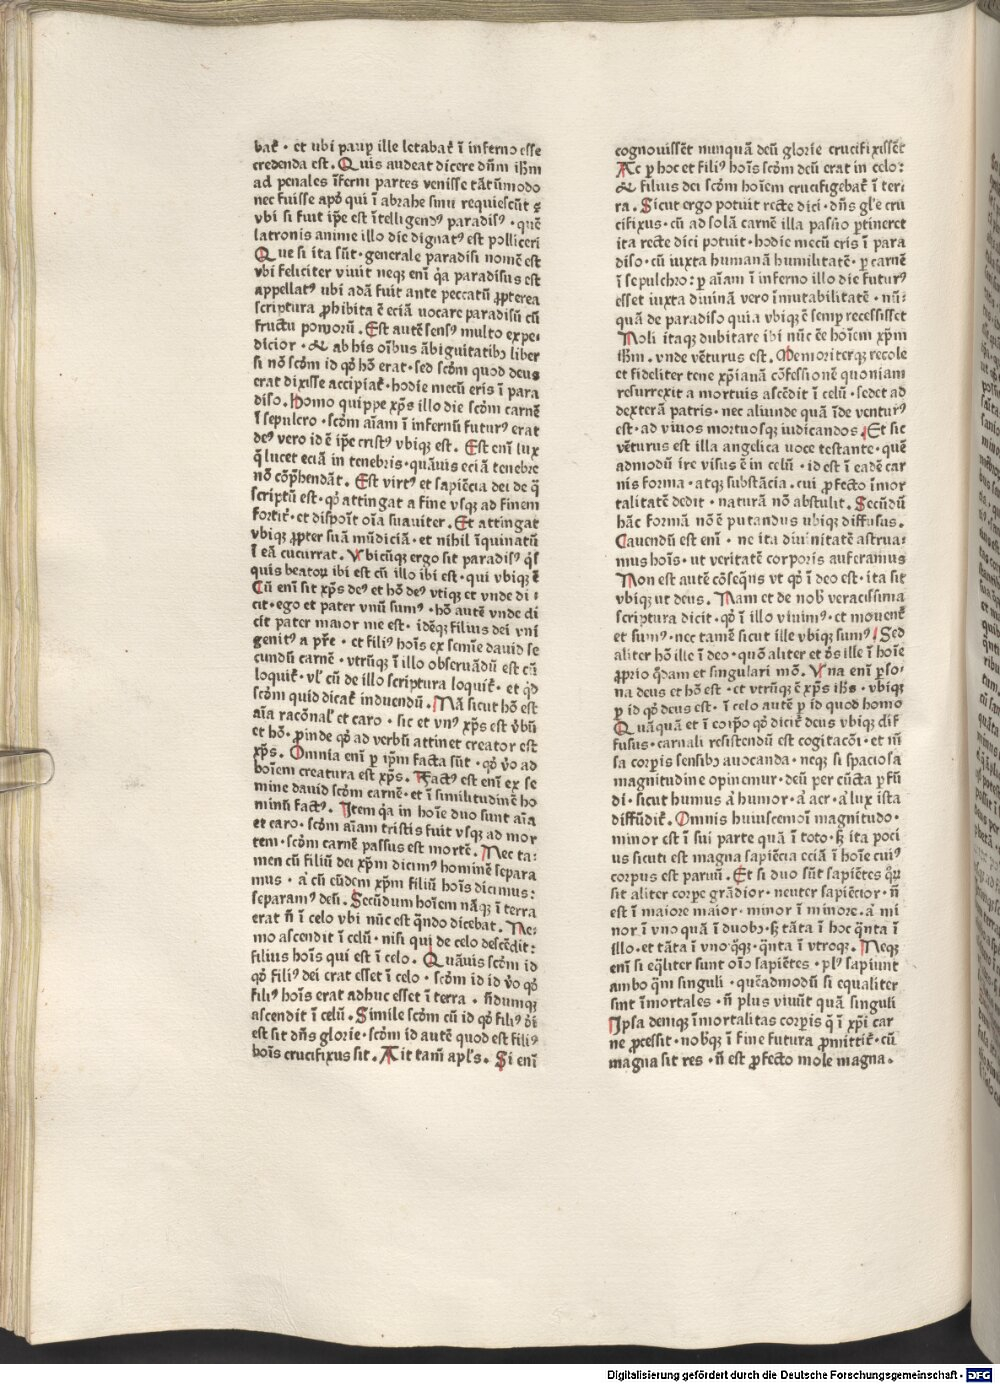 bat᷑ · et ubi paup ille letabat᷑ ī inferno esse
credenda est. Quis audeat dicere dn̄m ih̄m
ad penales īferni partes venisse tātūmodo
nec fuisse apd̕ qui ī abrahe sinu requiescūt ꝛ
vbi si fuit ip̄e est ītelligendꝰ paradisꝰ · quē
latronis anime illo die dignatꝰ est polliceri
Que si ita sūt · generale paradisi nomē est
vbi feliciter viuit neqꝫ enī q̄a paradisus est
appellatꝰ ubi adā fuit ante peccatū ꝓpterea
scriptura ꝓhibita ē eciā uocare paradisū cū
fructu pomorū. Est autē sensꝰ multo expe⸗
dicior · & ab his oībus ābiguitatibꝫ liber
si nō scd̄m id qd̕ hō erat · sed scd̄m quod deus
erat dixisse accipiat᷑ · hodie mecū eris ī para
diso. Homo quippe xp̄s illo die scd̄m carnē
ī sepulcro · scd̄m aīam ī infernū futurꝰ erat
deꝰ vero id ē ip̄e cristꝰ vbique est. Est enī lux
q̄ lucet eciā in tenebris · quāuis eciā tenebre
nō cōp̄hendāt. Est virtꝰ et sapiēcia dei de q̄
scriptū est · qd̕ attingat a fine vsqꝫ ad finem
fortit᷑ · et dispoīt oīa suauiter. Et attingat
vbiqꝫ ꝓpter suā mūdiciā · et nihil īquinatū
ī eā cucurrat. Vbicūqꝫ ergo sit paradisꝰ q̄s
quis beatoꝝ ibi est cū illo ibi est · qui vbiqꝫ ē
Cū enī sit xp̄s deꝰ et hō deꝰ vtiqꝫ et vnde di⸗
cit · ego et pater vnū sumꝰ · hō autē vnde di
cit pater maior me est · idēqꝫ filius dei vni
genitꝰ a pr̄e · et filiꝰ hoīs ex semīe dauid se
cundū carnē · vtrūqꝫ ī illo obseruādū est cū
loquit᷑ · vl̕ cū de illo scriptura loquit᷑ · et qd̕
scd̄m quid dicat᷑ induendū. Nā sicut hō est
aīa racōnal̕ et caro · sic et vnꝰ xp̄s est v̕bū
et hō · ꝓinde qd̕ ad verbū attinet creator est
xp̄s. Omnia enī ꝑ ip̄m facta sūt · qd̕ v̕o ad
hoīem creatura est xp̄s. Factꝰ est enī ex se
mine dauid scd̄m carnē · et ī similitudinē ho
minū factꝰ. Item q̄a in hoīe duo sunt aīa
et caro · scd̄m aīam tristis fuit vsqꝫ ad mor
tem · scd̄m carnē passus est mortē. Nec ta⸗
men cū filiū dei xp̄m dicimꝰ hominē separa
mus · a̕ cū eūdem xp̄m filiū hoīs dicimus:
separamꝰ deū. Secūdum hoīem nāqꝫ ī terra
erat n̄ ī celo vbi nūc est q̄ndo dicebat. Ne⸗
mo ascendit ī celū · nisi qui de celo descēdit:
filius hoīs qui est ī celo. Quāuis scd̄m id
qd̕ filiꝰ dei erat esset ī celo · scd̄m id v̕o qd̕
filiꝰ hoīs erat adhuc esset ī terra · n̄dumqꝫ
ascendit ī celū. Simile scd̄m cū id qd̕ filiꝰ d̕i
est sit dn̄s glorie · scd̄m id autē quod est filiꝰ
hoīs crucifixus sit. Ait tam̄ apl̕s. Si enī
cognouissēt nunquā deū glorie crucifixissēt
Ac ꝑ hoc et filiꝰ hoīs scd̄m deū erat in celo:
& filius dei scd̄m hoīem crucifigebat᷑ ī ter⸗
ra. Sicut ergo potuit recte dici · dn̄s gl̕e cru
cifixus · cū ad solā carnē illa passio ꝑtineret
ita recte dici potuit · hodie mecū eris ī para
diso · cū iuxta humanā humilitatē · ꝑ carnē
ī sepulchro: ꝑ aīam ī inferno illo die futurꝰ
esset iuxta diuinā vero īmutabilitatē · nū⸗
quā de paradiso quia vbiqꝫ ē semp recessisset
Noli itaqꝫ dubitare ibi nūc ēē hoīem xp̄m
ih̄m · vnde vēturus est. Memoriterqꝫ recole
et fideliter tene xp̄ianā cōfessionē quoniam
resurrexit a mortuis ascēdit ī celū · sedet ad
dexterā patris · nec aliunde quā īde venturꝰ
est · ad viuos mortuosqꝫ iudicandos. Et sic
vēturus est illa angelica uoce testante · quē
admodū ire visus ē in celū · id est ī eadē car
nis forma · atqꝫ substācia. cui ꝓfecto īmor
talitatē dedit · naturā nō abstulit. Secūdū
hāc formā nō ē putandus ubiqꝫ diffusus.
Cauendū est enī · ne ita diuinitatē astrua⸗
mus hoīs · ut veritatē corporis auferamus
Non est autē cōseq̄ns vt qd̕ ī deo est · ita sit
vbiqꝫ ut deus. Nam et de nob̕ veracissima
scriptura dicit · qd̕ ī illo viuimꝰ · et mouemꝰ
et sumꝰ · nec tamē sicut ille vbiqꝫ sumꝰ. Sed
aliter hō ille ī deo · quō aliter et d̕s ille ī hoīe
ꝓprio q̄dam et singulari mō. Vna enī ꝑso⸗
na deus et hō est · et vtrūqꝫ ē xp̄s ih̄s · vbiqꝫ
ꝑ id qd̕ deus est · ī celo autē ꝑ id quod homo
Quāquā et ī corp̄o qd̕ dicit᷑ deus vbiqꝫ dif
fusus · carnali resistendū est cogitacōi · et m̄
sa corpis sensibꝫ auocanda · neqꝫ si spaciosa
magnitudine opinemur · deū per cūcta ꝑfū
di · sicut humus a̕ humor · a̕ aer · a̕ lux ista
diffūdit᷑. Omnis huiuscemōi magnitudo ·
minor est ī sui parte quā ī toto · sꝫ ita poci
us sicuti est magna sapiēcia eciā ī hoīe cuiꝰ
corpus est paruū. Et si duo sūt sapiētes q̄ꝝ
sit aliter corpe grādior · neuter sapiēcior · n̄
est ī maiore maior · minor ī minore · a̕ mi
nor ī vno quā ī duobꝫ · sꝫ tāta ī hoc q̄nta ī
illo · et tāta ī vno q̄qꝫ · q̄nta ī vtroqꝫ. Neqꝫ
enī si eq̄liter sunt oīo sapiētes · plꝰ sapiunt
ambo q̄m singuli · quēadmodū si equaliter
sint īmortales · n̄ plus viuūt quā singuli
Ipsa deniqꝫ īmortalitas corpis q̄ ī xp̄i car
ne ꝓcessit · nob̕qꝫ ī fine futura ꝓmittit᷑ · cū
magna sit res · n̄ est ꝓfecto mole magna.
Digitalisierung gefördert durch die Deutsche Forschungsgemeinschaft - DFG